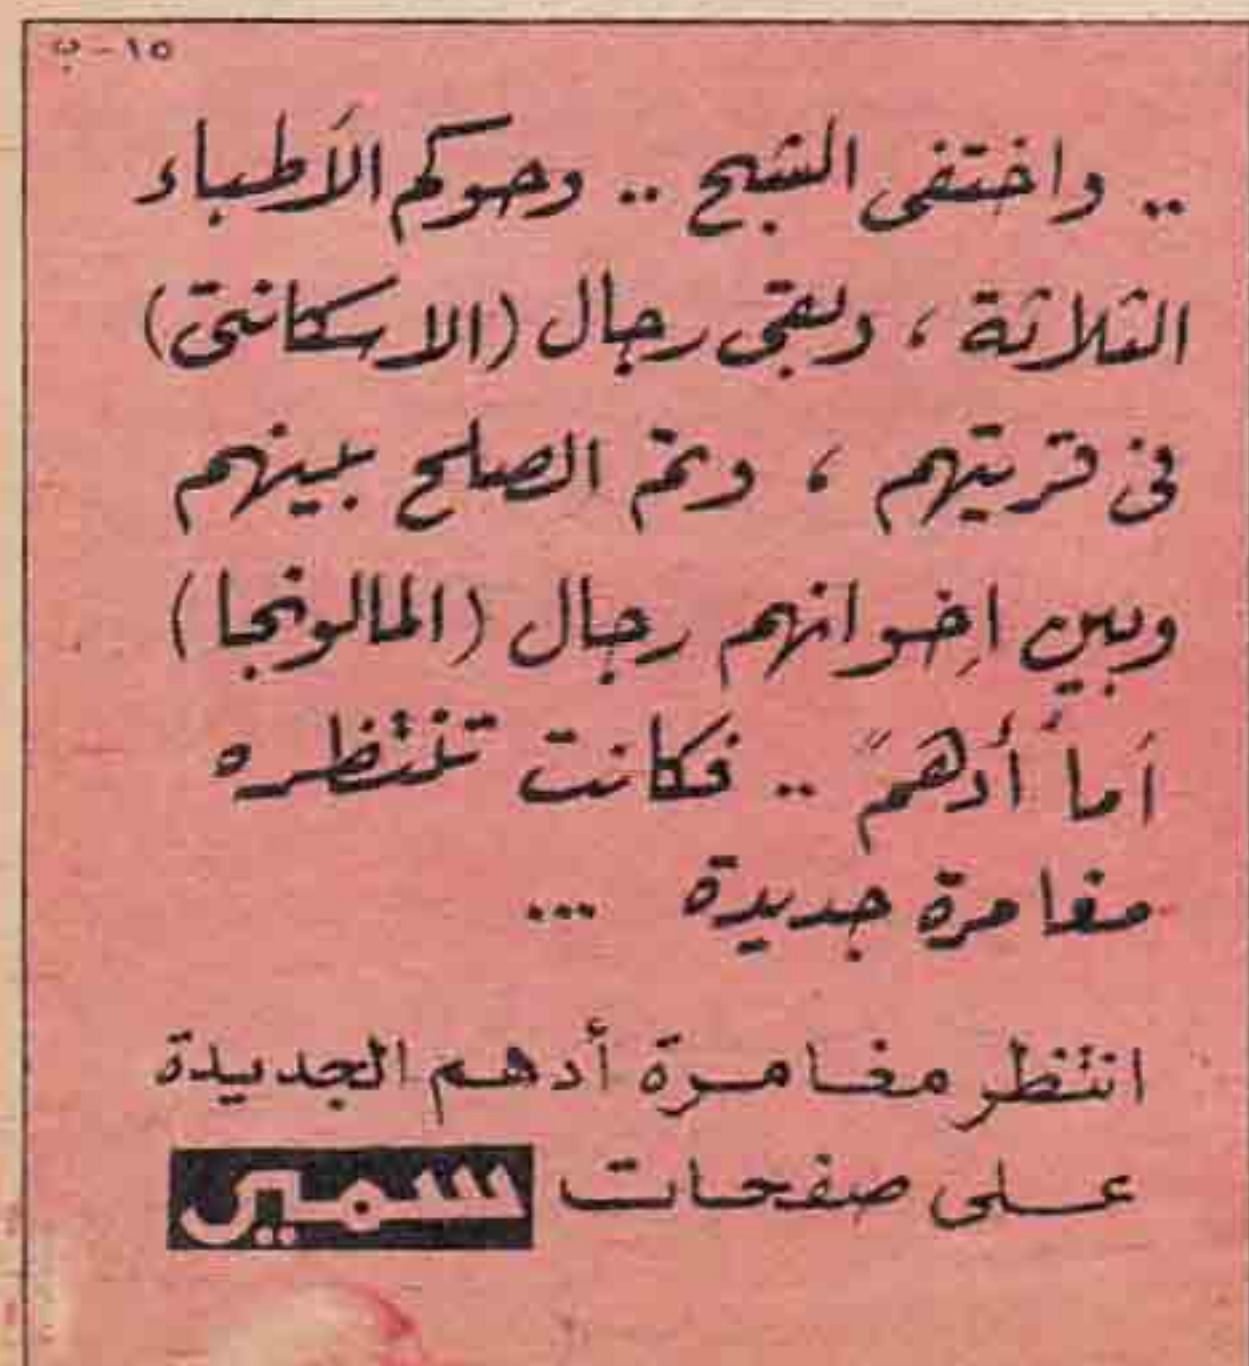 ١٥-ب
.. واختفى الشبح .. وحوكم الأطباء
الثلاثة ، وبقى رجال (الاسكانتى)
فى قريتهم ، وتم الصلح بينهم
وبين اخوانهم رجال (المالونجا)
أما "أدهم" .. فكانت تنتظره
مغامرة جديدة ...
انتظر مغامرة أدهم الجديدة
على صفحات سمير